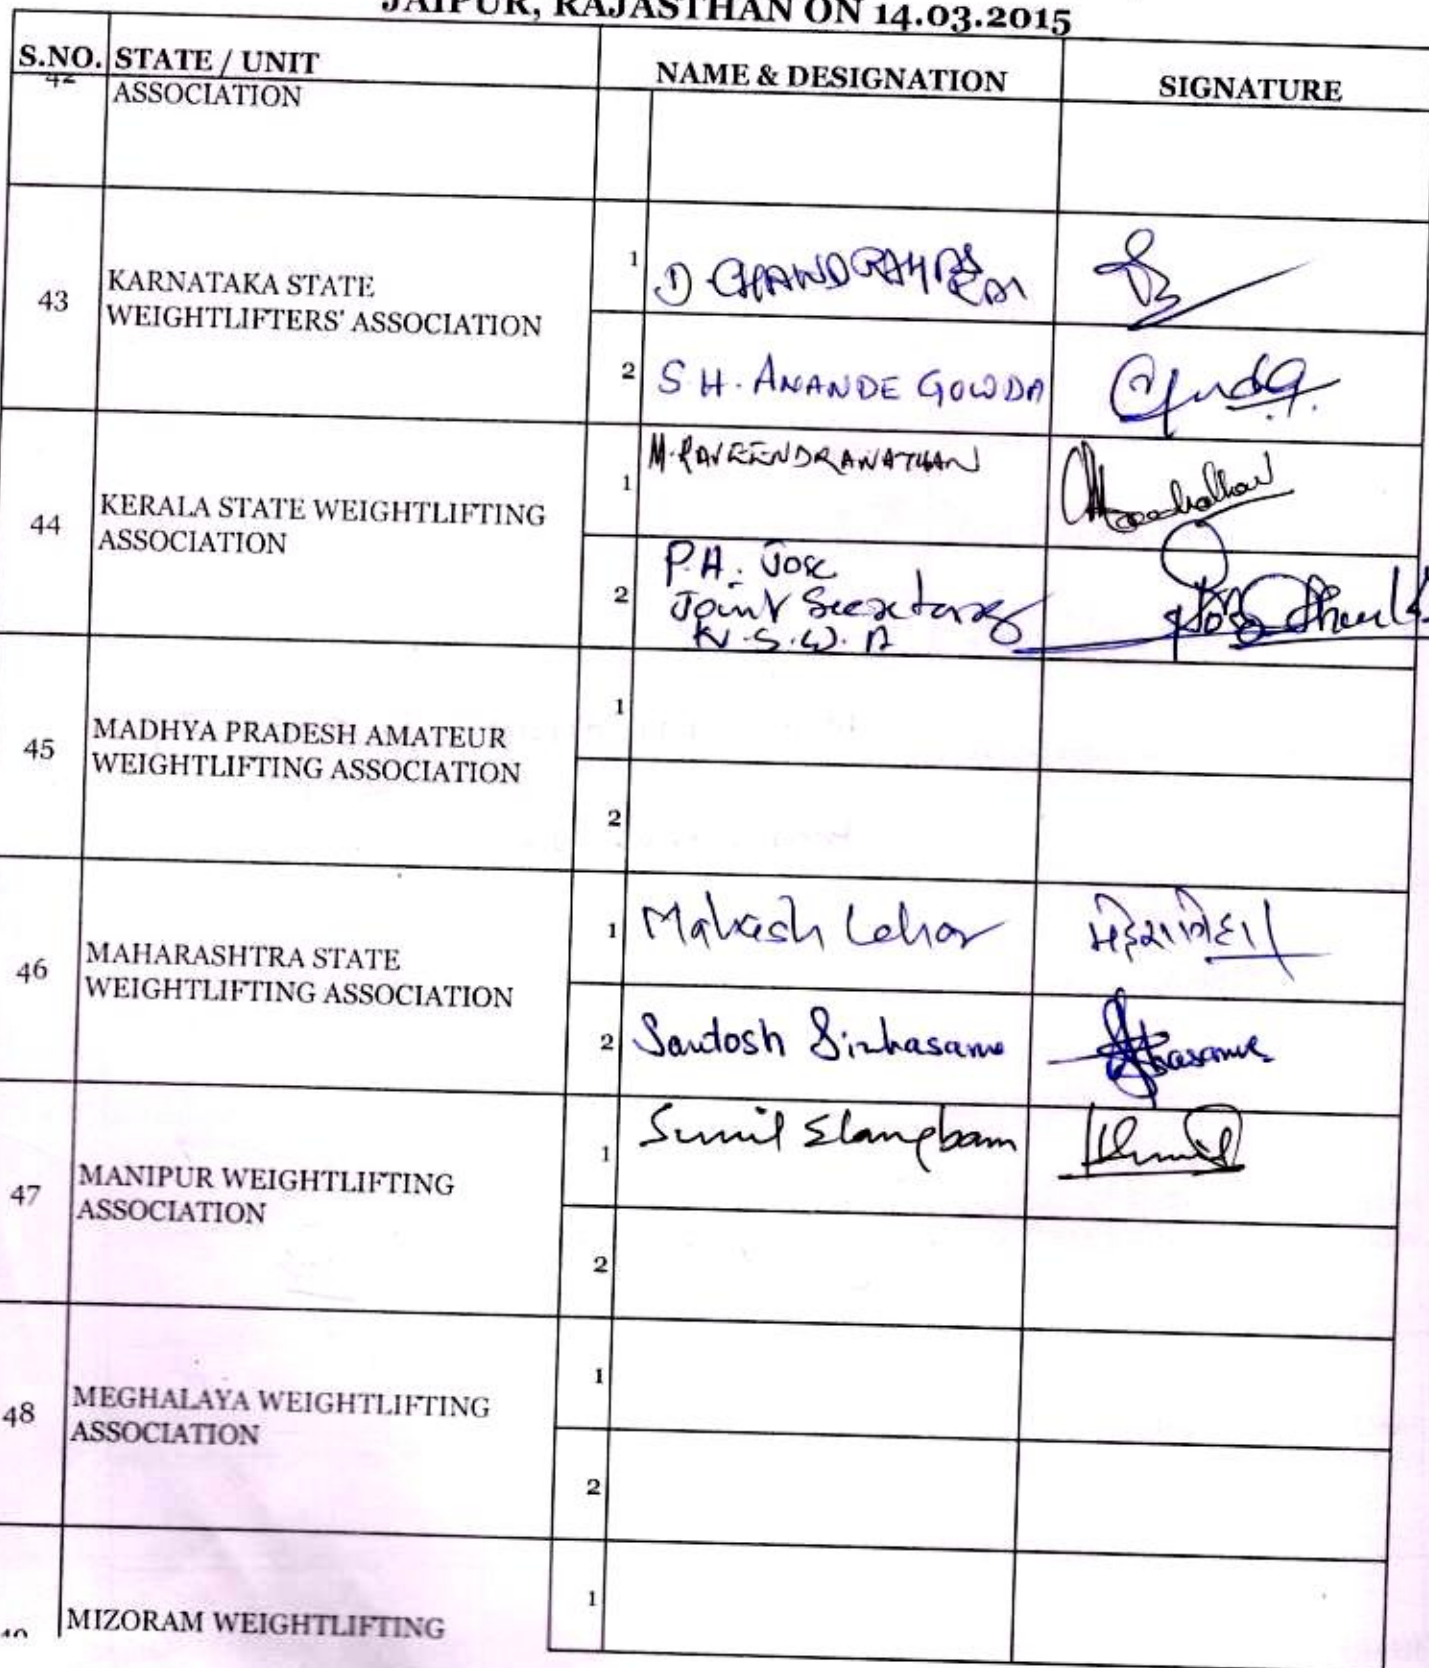 JAIPUR, RAJASTHAN ON 14.03.2015
S.NO. STATE / UNIT NAME & DESIGNATION SIGNATURE
42 ASSOCIATION
43 KARNATAKA STATE
WEIGHTLIFTERS' ASSOCIATION
1 D CHANDRAHAS RAI
2 S H. ANANDE GOWDA
44 KERALA STATE WEIGHTLIFTING
ASSOCIATION
1 M. RAVEENDRANATHAN
2 P.A. Jose
Joint Secretary
K.S.W.A
45 MADHYA PRADESH AMATEUR
WEIGHTLIFTING ASSOCIATION
1
2
46 MAHARASHTRA STATE
WEIGHTLIFTING ASSOCIATION
1 Mahesh
2 Santosh Sinhasane
47 MANIPUR WEIGHTLIFTING
ASSOCIATION
1 Sunil Elangbam
2
48 MEGHALAYA WEIGHTLIFTING
ASSOCIATION
1
2
MIZORAM WEIGHTLIFTING
1